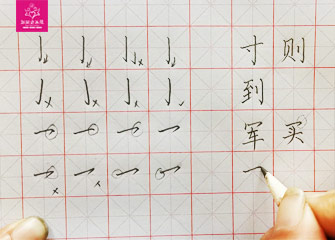 寸 则
到
军 买